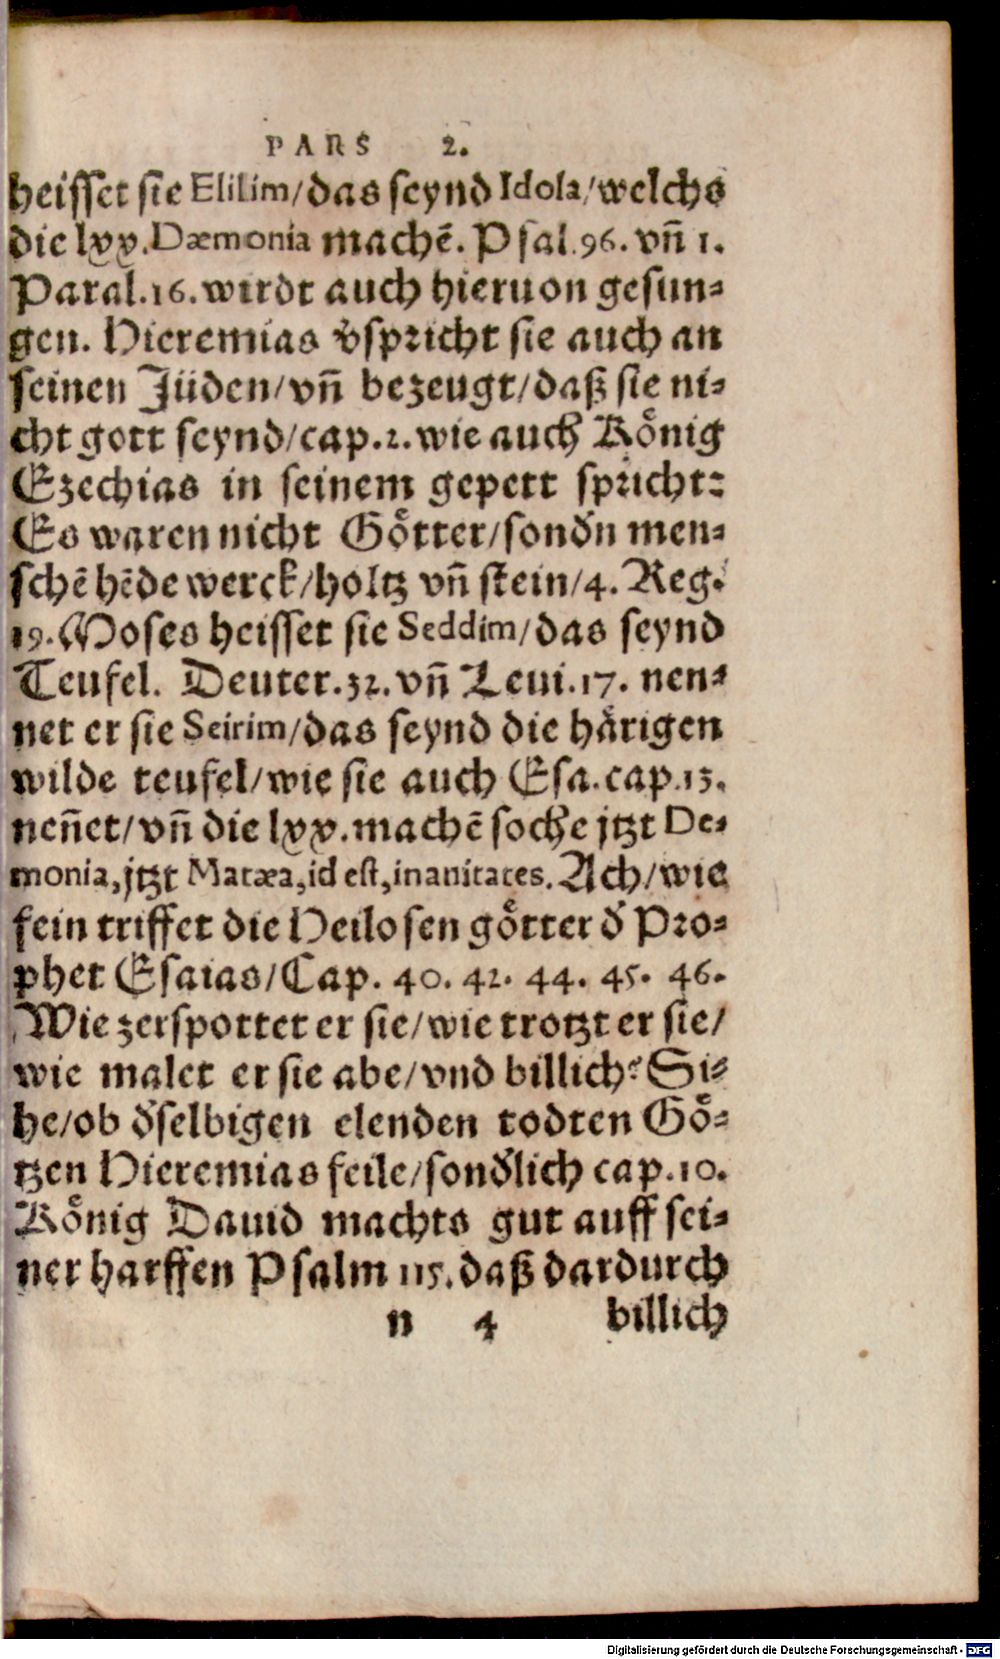 PARS 2.
heisset sie Elilim/das seynd Idola/welchs
die lxx. Dæmonia machẽ. Psal.96. vñ 1.
Paral.16. wirdt auch hieruon gesun-
gen. Hieremias v̊spricht sie auch an
seinen Jüden/vñ bezeugt/daß sie ni-
cht gott seynd/cap.2. wie auch Kőnig
Ezechias in seinem gepett spricht:
Es waren nicht Gőtter/sonďn men-
schẽ hẽde werck/holtz vñ stein/4. Reg.
19. Moses heisset sie Seddim/das seynd
Teufel. Deuter.32. vñ Leui.17. nen-
net er sie Seirim/das seynd die hårigen
wilde teufel/wie sie auch Esa.cap.13.
neñet/vñ die lxx. machẽ soche jtzt De-
monia, jtzt Matæa, id est, inanitates. Ach/wie
fein triffet die Heilosen gőtter ď Pro-
phet Esaias/Cap. 40. 42. 44. 45. 46.
Wie zerspottet er sie/wie trotzt er sie/
wie malet er sie abe/vnd billich? Si-
he/ob ďselbigen elenden todten Gő-
tzen Hieremias feile/sonďlich cap.10.
Kőnig Dauid machts gut auff sei-
ner harffen Psalm 115. daß dardurch
n 4 billich
Digitalisierung gefördert durch die Deutsche Forschungsgemeinschaft - DFG